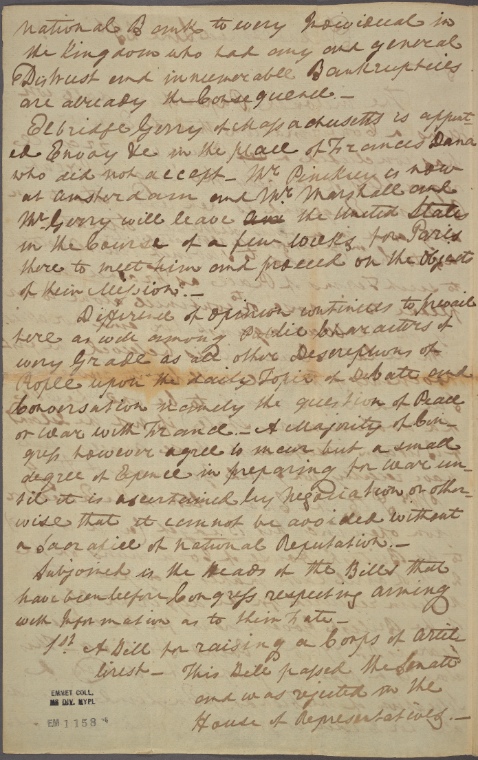 National Bank to every Individual in
the Kingdom who had any and general
Distrust and innumerable Bankruptcies
are already the Consequence —
Elbridge Gerry of Massachusetts is appoint
ed Envoy &c in the place of Francis Dana
who did not accept — Mr. Pinckney is now
at Amsterdam and Mr. Marshall and
Mr Gerry will leave the United States
in the Course of a few weeks for Paris
there to meet him and proceed on the Objects
of their Mission. —
Difference of opinion continues to prevail
here as well among Public Characters of
every Grade as all other Descriptions of
People upon the daily Topic of Debate and
Conversation namely the question of Peace
or War with France. — A Majority of Con-
gress however agree to incur but a small
degree of Expence in preparing for War un-
til it is ascertained by Negociation or other-
wise that it cannot be avoided without
a Sacrafice of National Reputation. —
Subjoined is the Heads of the Bills that
have been before Congress respecting arming
with Information as to their fate —
1st A Bill for raising a Corps of Artil
lirist — This Bill passed the Senate
and was rejected in the
House of Representatives. —
EMMET COLL.
MS DIV. NYPL
EM 1158